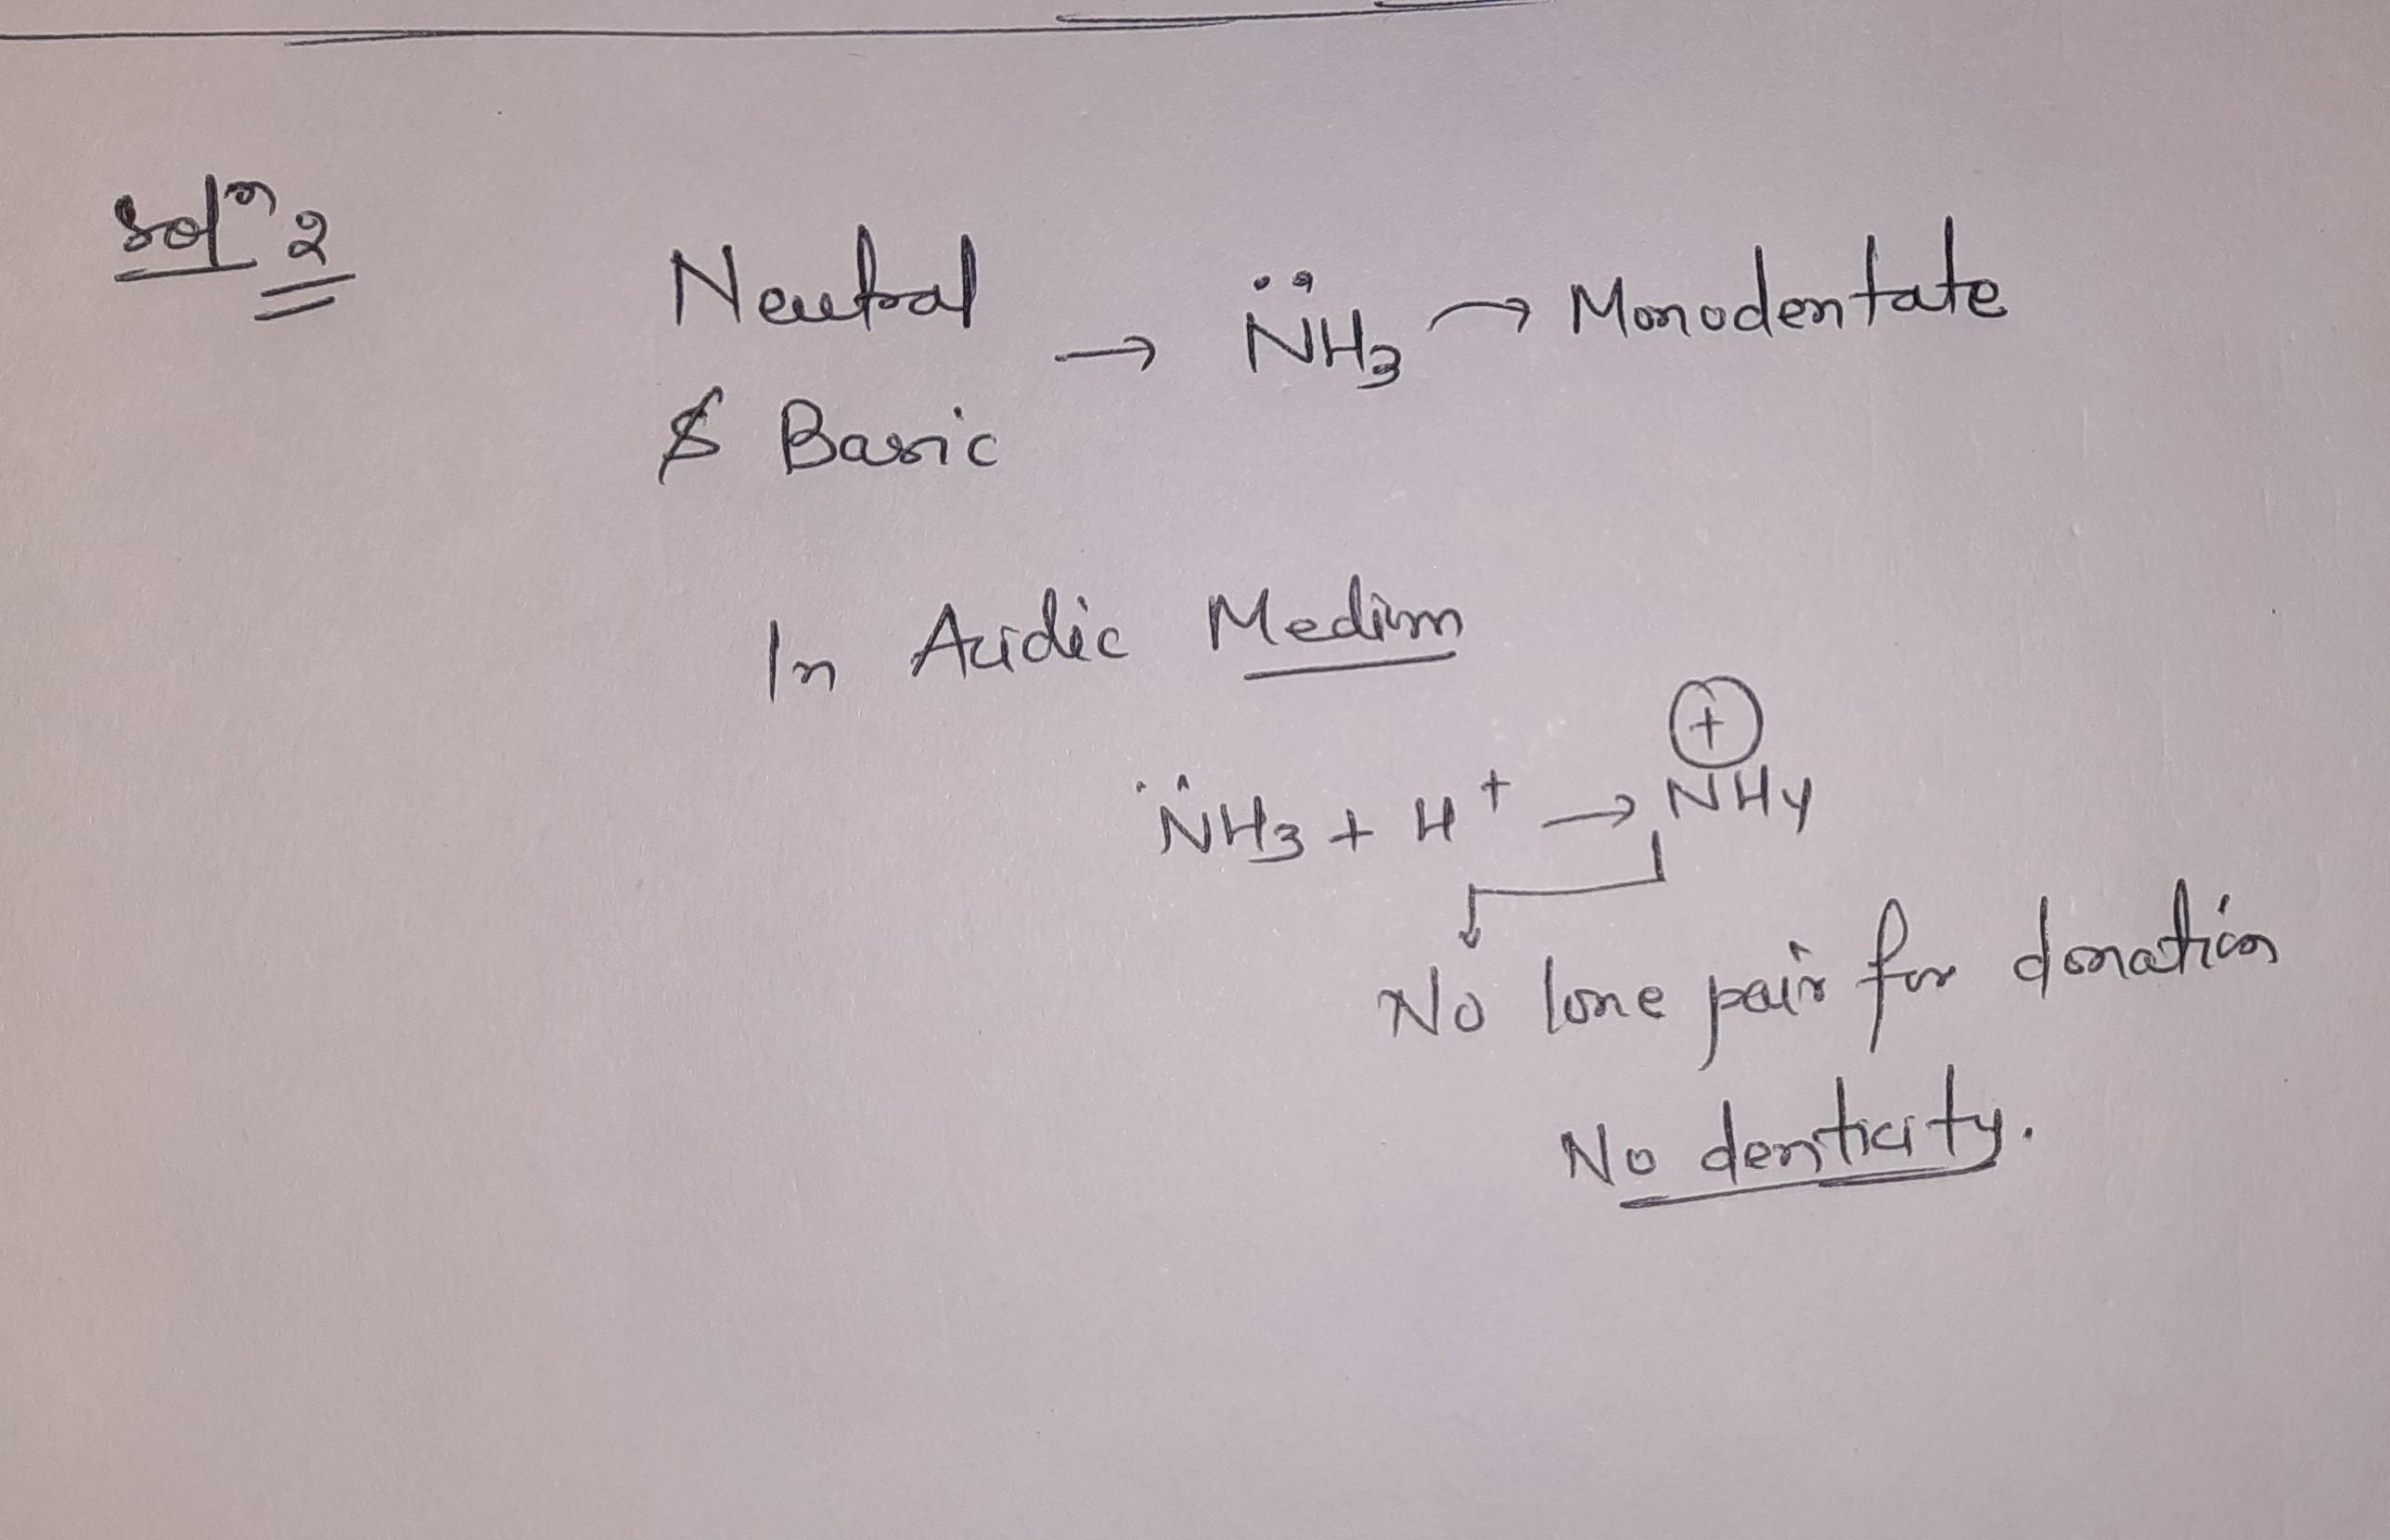 Solⁿ 2
Neutral
& Basic → N̈H₃ → Monodentate
In Acidic Medium
N̈H₃ + H⁺ → N⁺H₄
No lone pair for donation
No denticity.